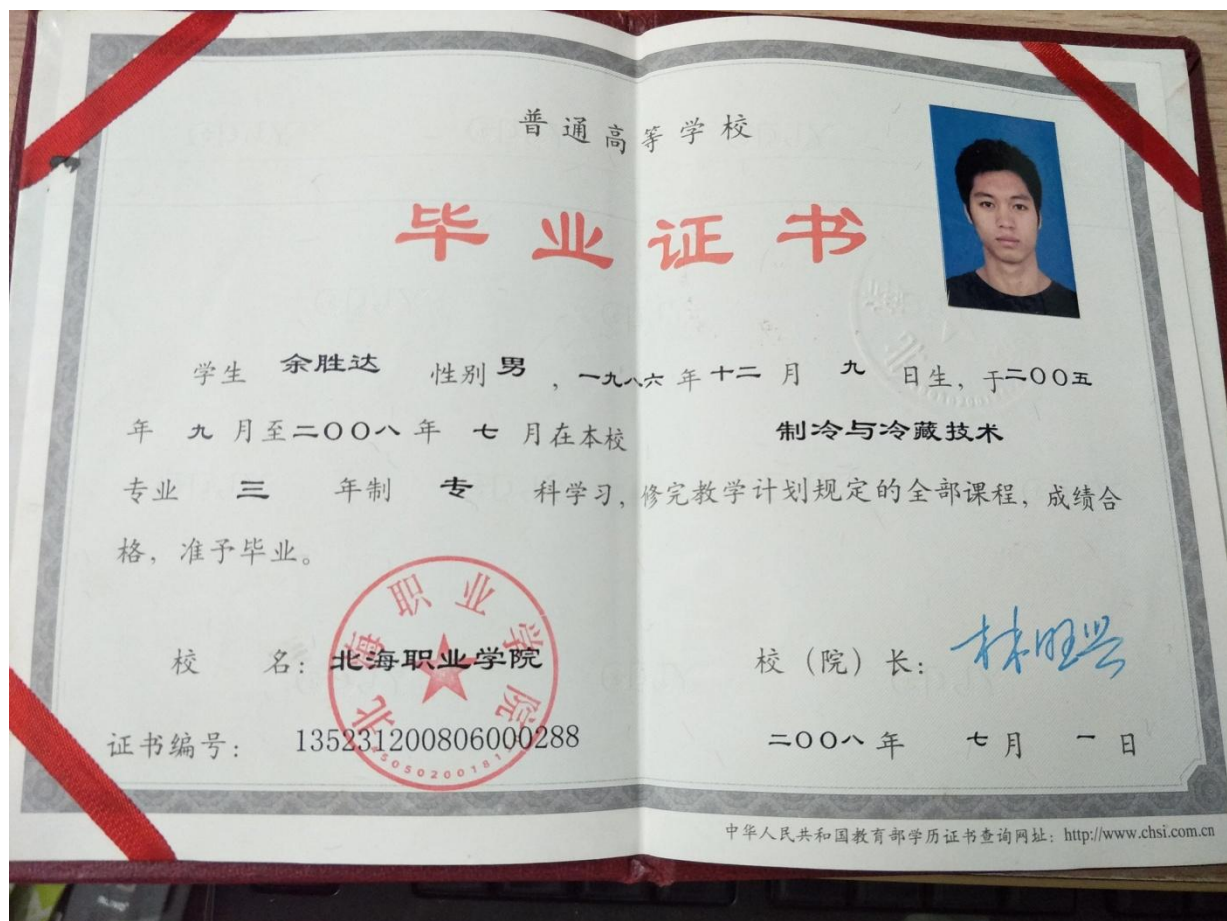 普通高等学校
毕业证书
学生 余胜达 性别 男 ，一九八六 年 十二 月 九 日生，于二00五
年 九 月至二00八 年 七 月在本校 制冷与冷藏技术
专业 三 年制 专 科学习，修完教学计划规定的全部课程，成绩合
格，准予毕业。
北海职业学院
校 名：北海职业学院
校（院）长：林旺兴
证书编号： 135231200806000288
二00八 年 七 月 一 日
中华人民共和国教育部学历证书查询网址：http://www.chsi.com.cn